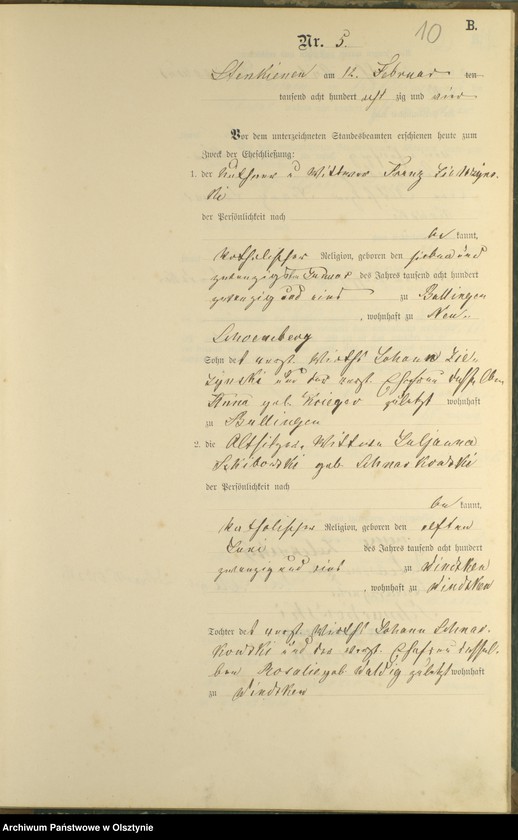 10
B.
Nr. 5.
Stenkienen am 12. Februar
tausend acht hundert acht zig und vier
Vor dem unterzeichneten Standesbeamten erschienen heute zum
Zweck der Eheschließung:
1. der Käthner u Wittwer Franz
ki
der Persönlichkeit nach
be kannt,
katholischer Religion, geboren den sieben und
zwanzigsten Januar des Jahres tausend acht hundert
zwanzig und eins zu Ballingen
, wohnhaft zu Neu-
Schoeneberg
Sohn des verst. Wirths Johann
und der verst. Ehefrau
Anna geb. Krieger zuletzt wohnhaft
zu Ballingen
2. die Altsitzer-Wittwe Juljanna
geb. Schnarkowski
der Persönlichkeit nach
be kannt,
katholischer Religion, geboren den elften
Juni des Jahres tausend acht hundert
zwanzig und eins zu Windtken
, wohnhaft zu Windtken
Tochter des verst. Wirths Johann Schnar-
kowski und der verst. Ehefrau dessel-
ben Rosalie geb. zuletzt wohnhaft
zu Windtken
Archiwum Państwowe w Olsztynie